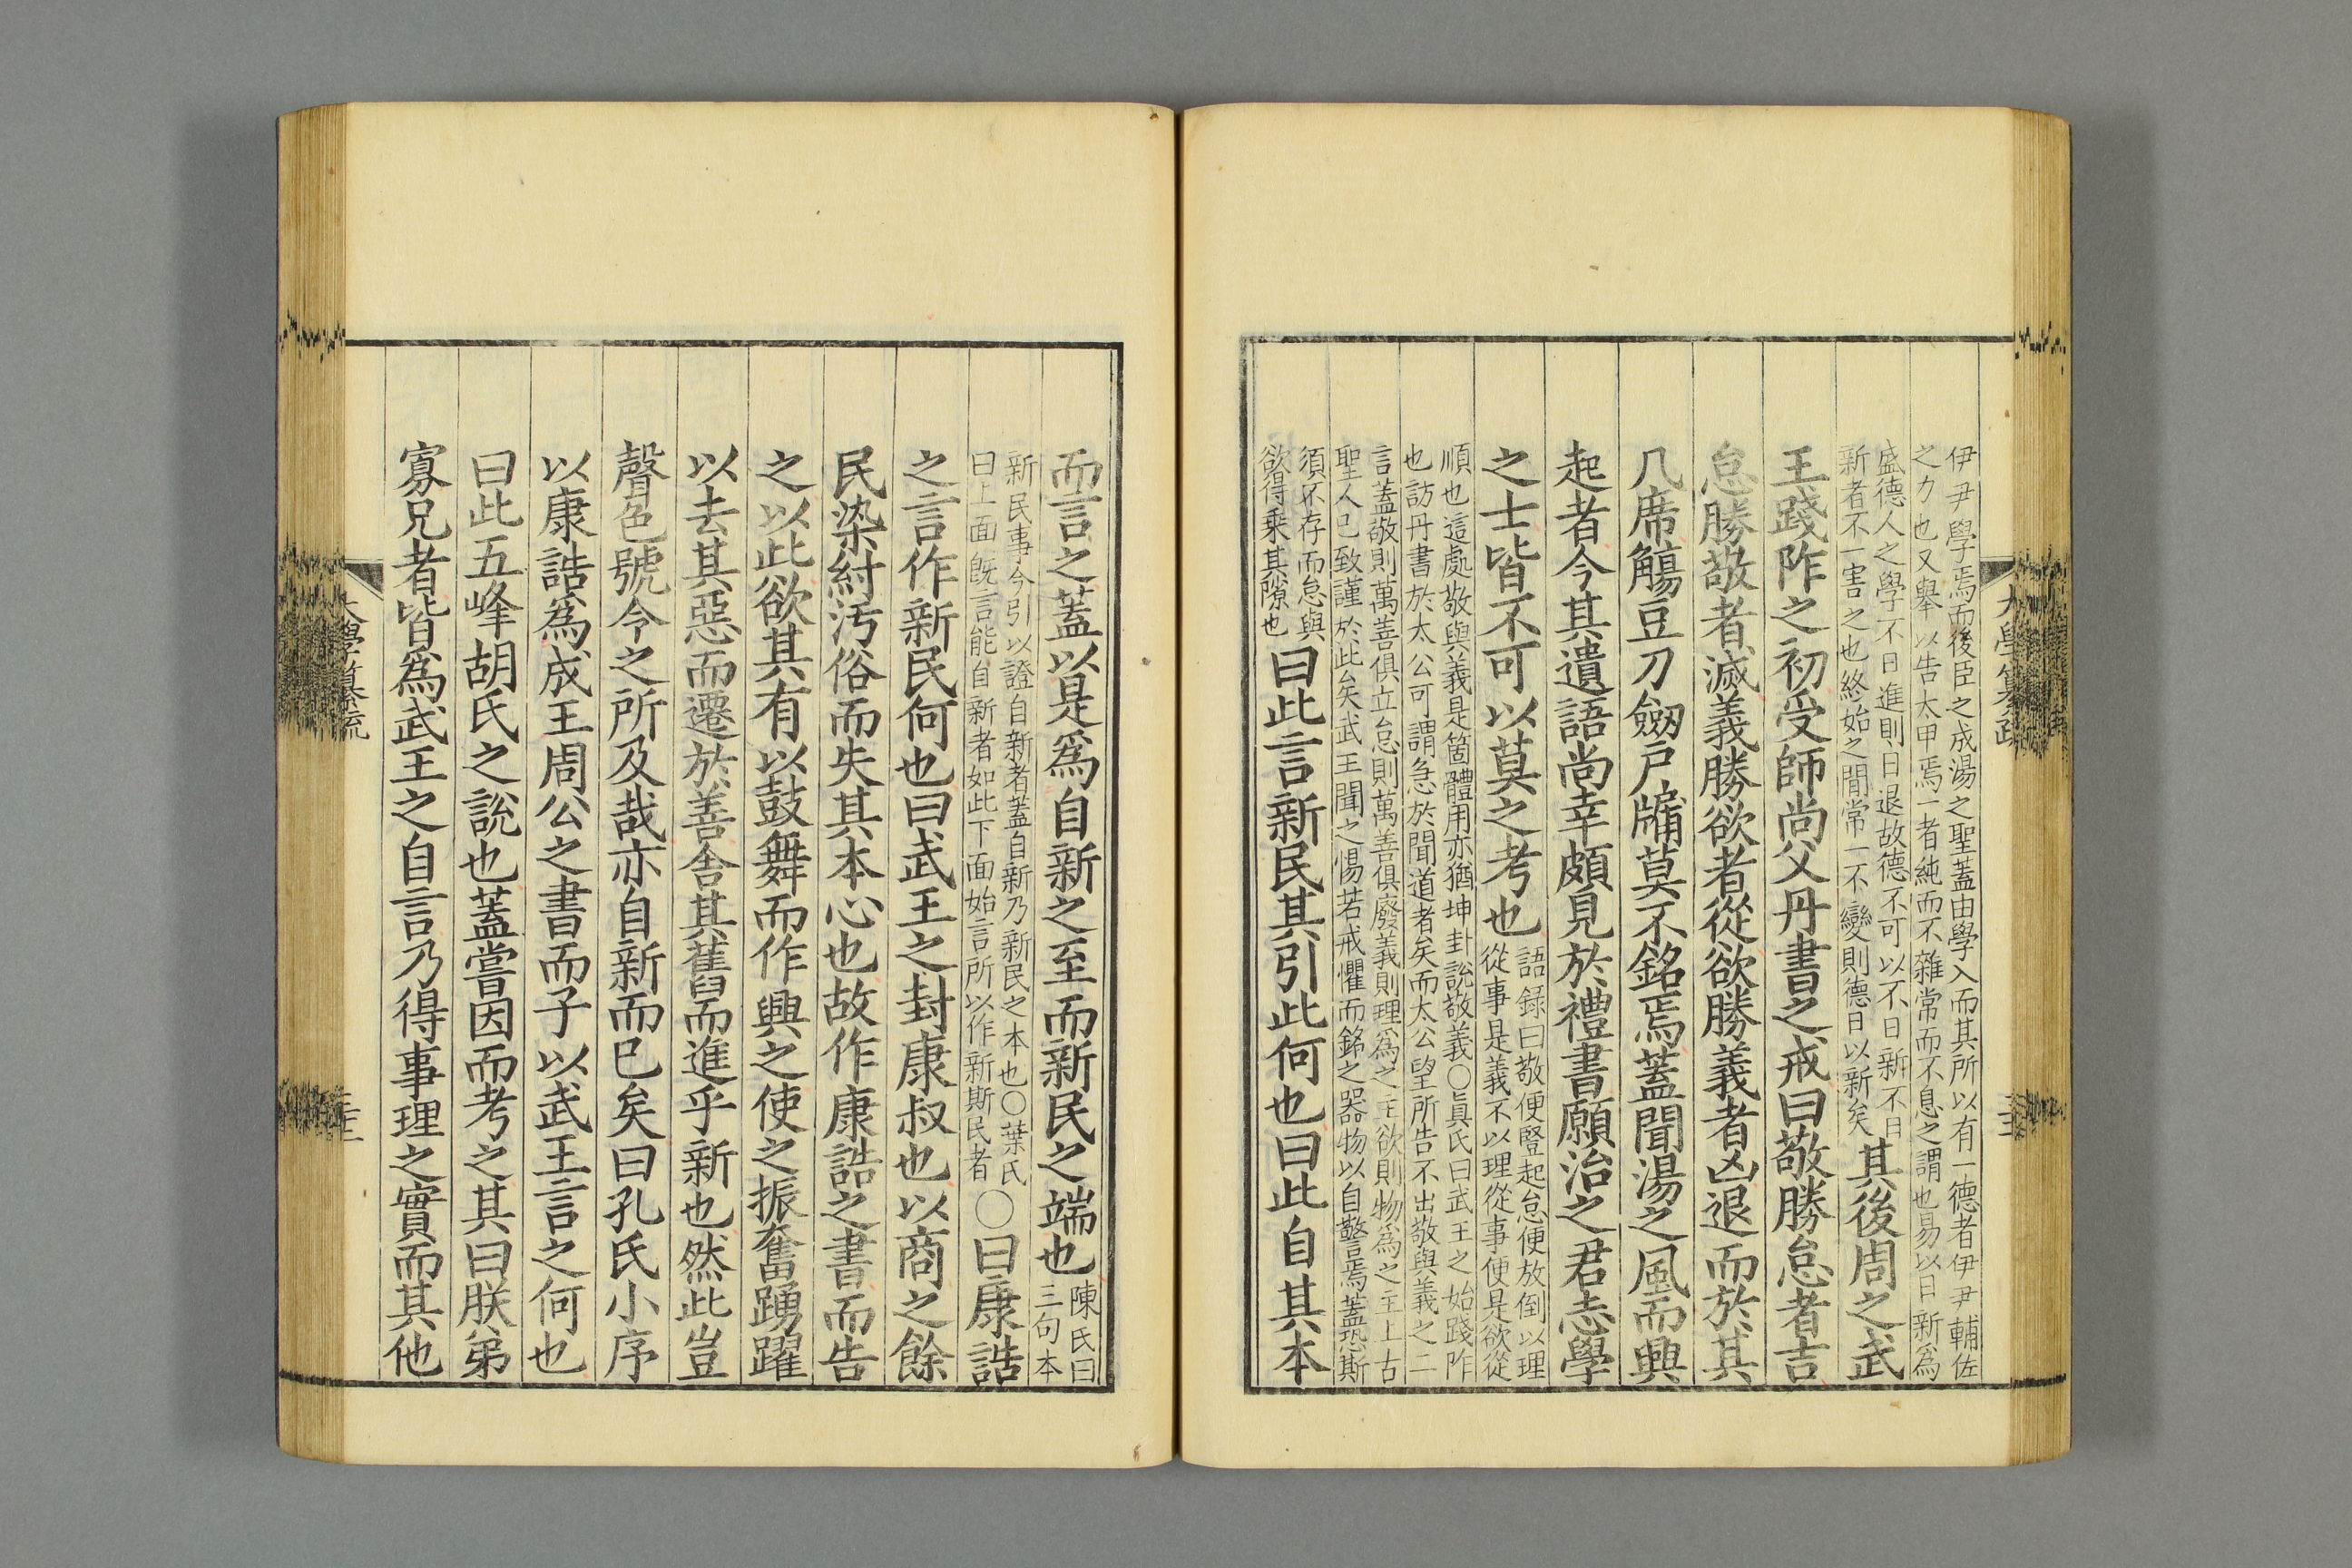 伊尹學焉而後臣之成湯之聖蓋由學入而其所以有一德者伊尹輔佐
之力也又舉以告太甲焉一者純而不雜常而不息之謂也易以日新爲
盛德人之學不日進則日退故德不可以不日新不日
新者不一害之也終始之間常一不變則德日以新矣
其後周之武
王踐阼之初受師尚父丹書之戒曰敬勝怠者吉
怠勝敬者滅義勝欲者從欲勝義者凶退而於其
几席觴豆刀劒戶牖莫不銘焉蓋聞湯之風而興
起者今其遺語尚幸頗見於禮書願治之君志學
之士皆不可以莫之考也
語錄曰敬便豎起怠便放倒以理
從事是義不以理從事便是欲從
順也這處敬與義是箇體用亦猶坤卦說敬義○眞氏曰武王之始踐阼
也訪丹書於太公可謂急於聞道者矣而太公望所告不出敬與義之二
言蓋敬則萬善俱立怠則萬善俱廢義則理爲之主欲則物爲之主上古
聖人已致謹於此矣武王聞之惕若戒懼而銘之器物以自警焉蓋恐斯
須不存而怠與
欲得乘其隙也
曰此言新民其引此何也曰此自其本
大學纂疏
而言之蓋以是爲自新之至而新民之端也
陳氏曰
三句本
新民事今引以證自新者蓋自新乃新民之本也○葉氏
曰上面旣言能自新者如此下面始言所以作新斯民者
○曰康誥
之言作新民何也曰武王之封康叔也以商之餘
民染紂汚俗而失其本心也故作康誥之書而告
之以此欲其有以鼓舞而作興之使之振奮踴躍
以去其惡而遷於善舍其舊而進乎新也然此豈
聲色號令之所及哉亦自新而已矣曰孔氏小序
以康誥爲成王周公之書而子以武王言之何也
曰此五峰胡氏之說也蓋嘗因而考之其曰朕弟
寡兄者皆爲武王之自言乃得事理之實而其他
大學纂疏